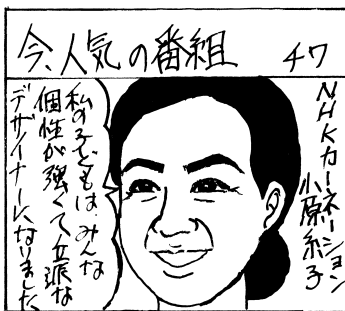 今、人気の番組
チワ
NHKカーネーション
小原糸子
私の子どもは、みんな
個性が強くて立派な
デザイナーになりました